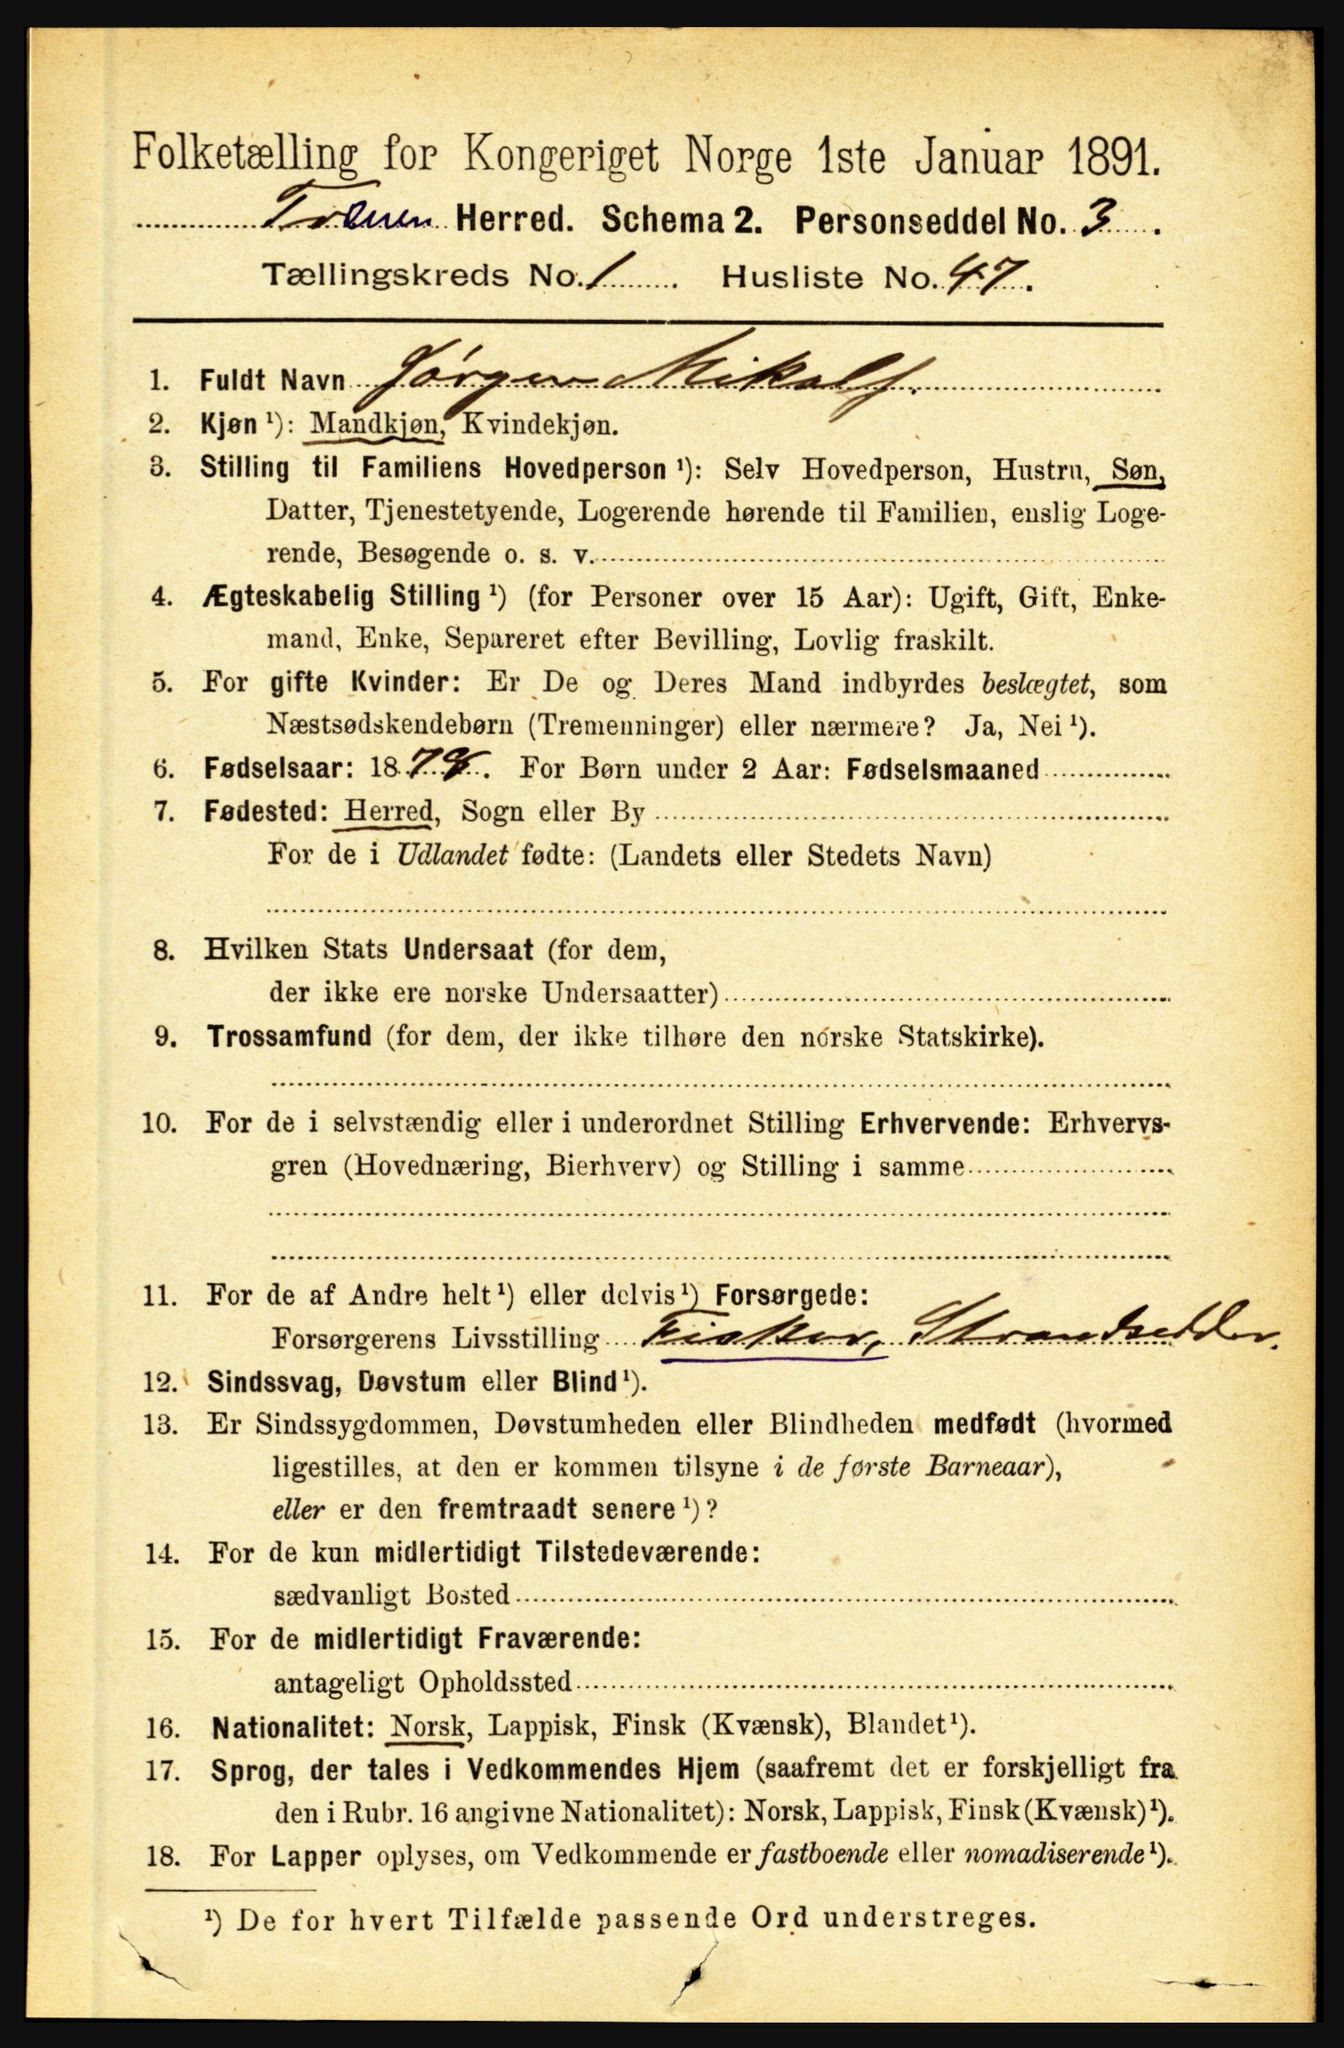 Folketælling for Kongeriget Norge 1ste Januar 1891.
Trænen Herred. Schema 2. Personseddel No. 3.
Tællingskreds No. 1. Husliste No. 47.
1. Fuldt Navn Jørgen Mikals.
2. Kjøn ¹): Mandkjøn, Kvindekjøn.
3. Stilling til Familiens Hovedperson ¹): Selv Hovedperson, Hustru, Søn,
Datter, Tjenestetyende, Logerende hørende til Familien, enslig Loge-
rende, Besøgende o. s. v.
4. Ægteskabelig Stilling ¹) (for Personer over 15 Aar): Ugift, Gift, Enke-
mand, Enke, Separeret efter Bevilling, Lovlig fraskilt.
5. For gifte Kvinder: Er De og Deres Mand indbyrdes beslægtet, som
Næstsødskendebørn (Tremenninger) eller nærmere? Ja, Nei ¹).
6. Fødselsaar: 18 . For Børn under 2 Aar: Fødselsmaaned
7. Fødested: Herred, Sogn eller By
For de i Udlandet fødte: (Landets eller Stedets Navn)
8. Hvilken Stats Undersaat (for dem,
der ikke ere norske Undersaatter)
9. Trossamfund (for dem, der ikke tilhøre den norske Statskirke).
10. For de i selvstændig eller i underordnet Stilling Erhvervende: Erhvervs-
gren (Hovednæring, Bierhverv) og Stilling i samme
11. For de af Andre helt ¹) eller delvis ¹) Forsørgede:
Forsørgerens Livsstilling Fisker, Strandsidder.
12. Sindssvag, Døvstum eller Blind ¹).
13. Er Sindssygdommen, Døvstumheden eller Blindheden medfødt (hvormed
ligestilles, at den er kommen tilsyne i de første Barneaar),
eller er den fremtraadt senere ¹)?
14. For de kun midlertidigt Tilstedeværende:
sædvanligt Bosted
15. For de midlertidigt Fraværende:
antageligt Opholdssted
16. Nationalitet: Norsk, Lappisk, Finsk (Kvænsk), Blandet ¹).
17. Sprog, der tales i Vedkommendes Hjem (saafremt det er forskjelligt fra
den i Rubr. 16 angivne Nationalitet): Norsk, Lappisk, Finsk (Kvænsk) ¹).
18. For Lapper oplyses, om Vedkommende er fastboende eller nomadiserende ¹).
¹) De for hvert Tilfælde passende Ord understreges.